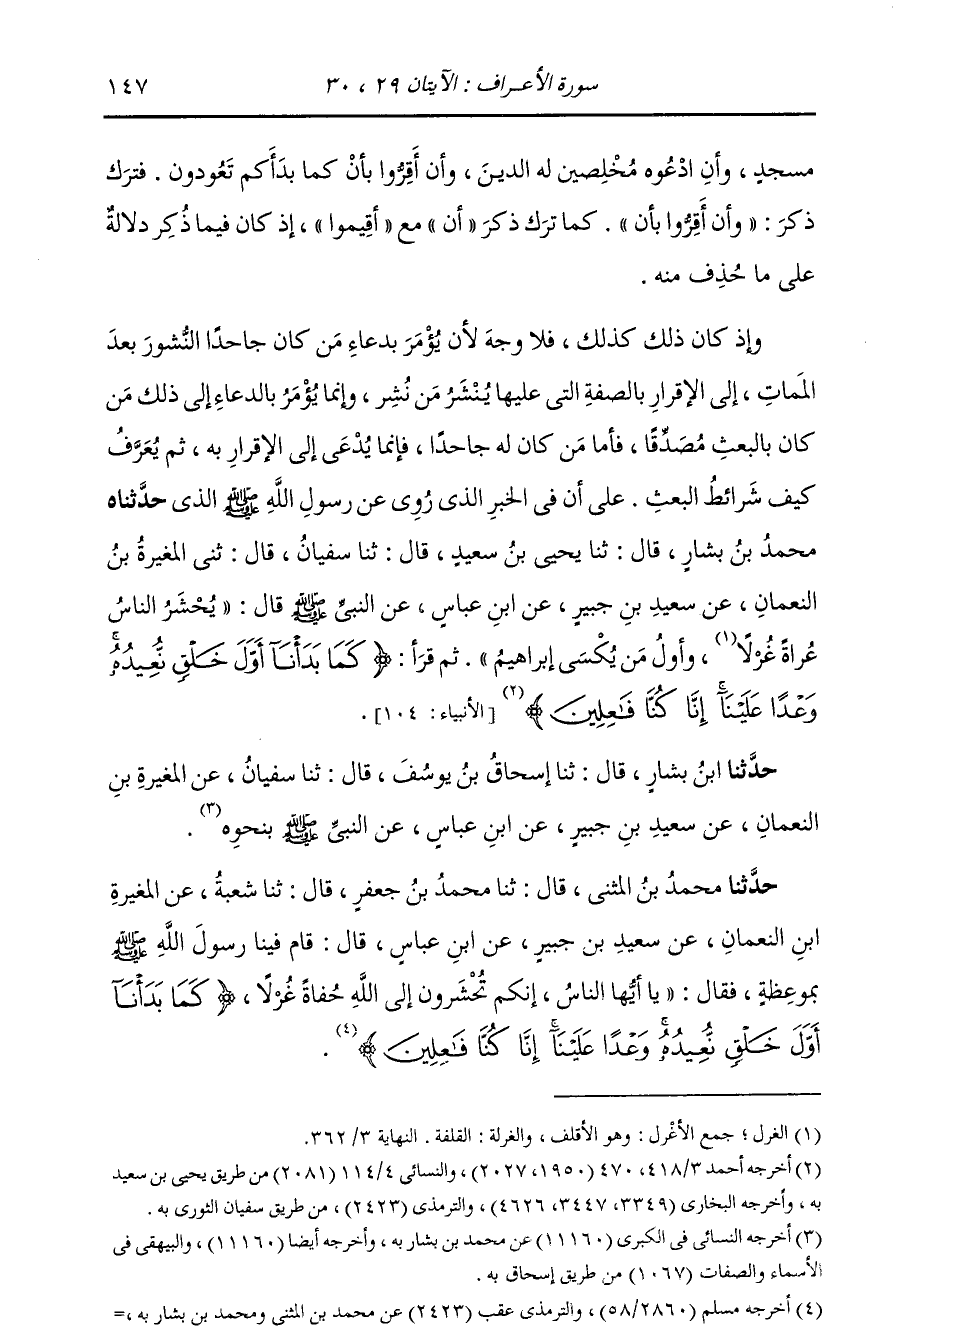 سورة الأعراف : الآيتان ٢٩ ، ٣٠ ١٤٧
مسجدٍ ، وأنِ ادْعُوه مُخْلِصين له الدينَ ، وأن أَقِرُّوا بأنْ كما بدَأَكم تَعُودون . فترَك
ذكرَ : « وأن أَقِرُّوا بأن » . كما ترَك ذكرَ « أن » مع « أقِيموا » ، إذ كان فيما ذُكِر دلالةٌ
على ما حُذِف منه .
وإذ كان ذلك كذلك ، فلا وجهَ لأن يُؤْمَرَ بدعاءِ مَن كان جاحدًا النُّشورَ بعدَ
المَماتِ ، إلى الإقرارِ بالصفةِ التى عليها يُنْشَرُ مَن نُشِر ، وإنما يُؤْمَرُ بالدعاءِ إلى ذلك مَن
كان بالبعثِ مُصَدِّقًا ، فأما مَن كان له جاحدًا ، فإنما يُدْعَى إلى الإقرارِ به ، ثم يُعَرَّفُ
كيف شَرائطُ البعثِ . على أن فى الخبرِ الذى رُوِى عن رسولِ اللَّهِ ﷺ الذى حدَّثناه
محمدُ بنُ بشارٍ ، قال : ثنا يحيى بنُ سعيدٍ ، قال : ثنا سفيانُ ، قال : ثنى المغيرةُ بنُ
النعمانِ ، عن سعيدِ بنِ جبيرٍ ، عن ابنِ عباسٍ ، عن النبىِّ ﷺ قال : « يُحْشَرُ الناسُ
عُراةً غُرْلًا(١) ، وأولُ مَن يُكْسَى إبراهيمُ » . ثم قرَأ : ﴿ كَمَا بَدَأْنَآ أَوَّلَ خَلْقٍ نُّعِيدُهُۥ
وَعْدًا عَلَيْنَآ إِنَّا كُنَّا فَٰعِلِينَ ﴾(٢) [الأنبياء: ١٠٤] .
حدَّثنا ابنُ بشارٍ ، قال : ثنا إسحاقُ بنُ يوسُفَ ، قال : ثنا سفيانُ ، عن المغيرةِ بنِ
النعمانِ ، عن سعيدِ بنِ جبيرٍ ، عن ابنِ عباسٍ ، عن النبىِّ ﷺ بنحوِه(٣) .
حدَّثنا محمدُ بنُ المثنى ، قال : ثنا محمدُ بنُ جعفرٍ ، قال : ثنا شعبةُ ، عن المغيرةِ
ابنِ النعمانِ ، عن سعيدِ بنِ جبيرٍ ، عن ابنِ عباسٍ ، قال : قام فينا رسولُ اللَّهِ ﷺ
بموعِظةٍ ، فقال : « يا أيُّها الناسُ ، إنكم تُحْشَرون إلى اللَّهِ حُفاةً غُرْلًا ، ﴿ كَمَا بَدَأْنَآ
أَوَّلَ خَلْقٍ نُّعِيدُهُۥ وَعْدًا عَلَيْنَآ إِنَّا كُنَّا فَٰعِلِينَ ﴾(٤) .
(١) الغرل ؛ جمع الأغْرل : وهو الأقلف ، والغرلة : القلفة . النهاية ٣/ ٣٦٢.
(٢) أخرجه أحمد ٤١٨/٣، ٤٧٠ (١٩٥٠، ٢٠٢٧) ، والنسائى ١١٤/٤ (٢٠٨١) من طريق يحيى بن سعيد
به ، وأخرجه البخارى (٣٣٤٩، ٣٤٤٧، ٤٦٢٦) ، والترمذى (٢٤٢٣) ، من طريق سفيان الثورى به .
(٣) أخرجه النسائى فى الكبرى (١١١٦٠) عن محمد بن بشار به ، وأخرجه أيضا (١١١٦٠) ، والبيهقى فى
الأسماء والصفات (١٠٦٧) من طريق إسحاق به .
(٤) أخرجه مسلم (٥٨/٢٨٦٠) ، والترمذى عقب (٢٤٢٣) عن محمد بن المثنى ومحمد بن بشار به ،=